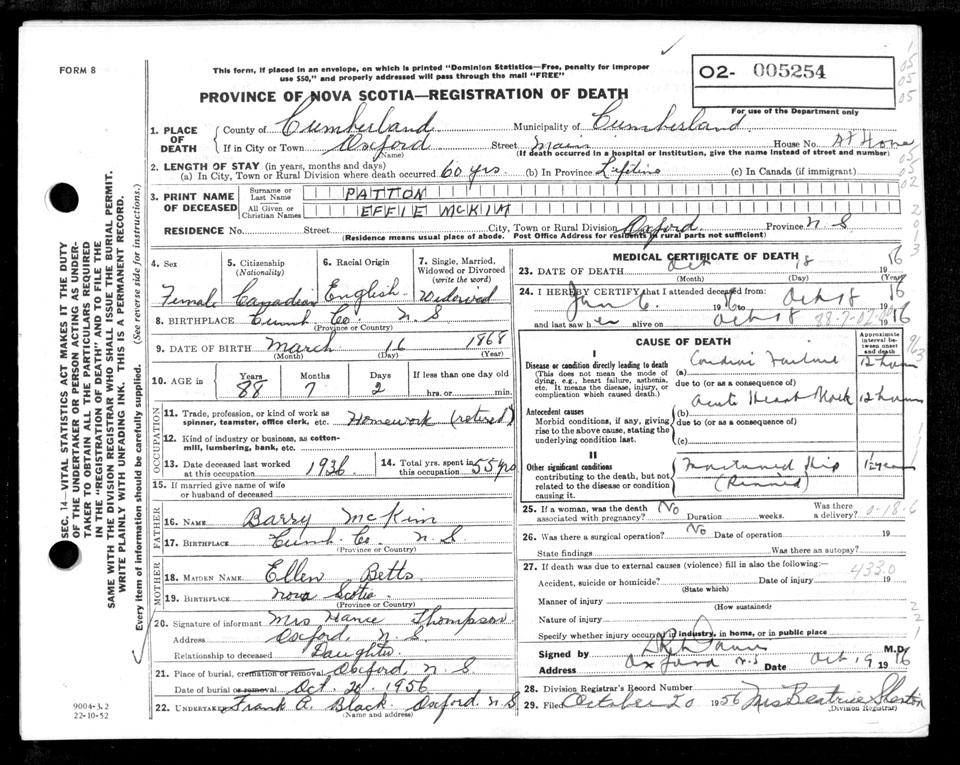 FORM 8
This form, if placed in an envelope, on which is printed "Dominion Statistics—Free, penalty for improper
use $50," and properly addressed will pass through the mail "FREE"
02- 005254
For use of the Department only
PROVINCE OF NOVA SCOTIA—REGISTRATION OF DEATH
1. PLACE OF DEATH { County of Cumberland Municipality of Cumberland
If in City or Town Oxford (Name) Street Main House No. At Home
(If death occurred in a hospital or institution, give the name instead of street and number)
2. LENGTH OF STAY (in years, months and days)
(a) In City, Town or Rural Division where death occurred 60 yrs. (b) In Province Lifetime (c) In Canada (if immigrant)
3. PRINT NAME OF DECEASED { Surname or Last Name PATTON
All Given or Christian Names EFFIE MCKIM
RESIDENCE No. Street City, Town or Rural Division Oxford Province N.S
(Residence means usual place of abode. Post Office Address for residents in rural parts not sufficient)
4. Sex Female
5. Citizenship (Nationality) Canadian
6. Racial Origin English
7. Single, Married, Widowed or Divorced (write the word) Widowed
8. BIRTHPLACE Cumb Co. N S
(Province or Country)
9. DATE OF BIRTH March 16 1868
(Month) (Day) (Year)
10. AGE in Years 88 Months 7 Days 2 If less than one day old
hrs. or min.
OCCUPATION
11. Trade, profession, or kind of work as
spinner, teamster, office clerk, etc. Homework (retired)
12. Kind of industry or business, as cotton-
mill, lumbering, bank, etc.
13. Date deceased last worked at this occupation 1936
14. Total yrs. spent in this occupation 55 yrs
15. If married give name of wife
or husband of deceased
FATHER
16. NAME Barry McKim
17. BIRTHPLACE Cumb. Co. N. S
(Province or Country)
MOTHER
18. MAIDEN NAME Ellen Betts
19. BIRTHPLACE Nova Scotia
(Province or Country)
20. Signature of informant Mrs Hance Thompson
Address Oxford, N. S.
Relationship to deceased Daughter
21. Place of burial, cremation or removal Oxford, N. S
Date of burial or removal Oct. 20. 1956
22. UNDERTAKER Frank A. Black Oxford. N S
(Name and address)
MEDICAL CERTIFICATE OF DEATH
23. DATE OF DEATH Oct 18 19 56
(Month) (Day) (Year)
24. I HEREBY CERTIFY that I attended deceased from
19 56 to Oct 18 19 56
and last saw h er alive on Oct 18 19 56
CAUSE OF DEATH
Approximate interval between onset and death
I
Disease or condition directly leading to death
(This does not mean the mode of
dying, e.g., heart failure, asthenia,
etc. It means the disease, injury, or
complication which caused death.)
(a) Cardiac Failure 12 hours
due to (or as a consequence of)
Acute Heart Block 12 hours
Antecedent causes
Morbid conditions, if any, giving
rise to the above cause, stating the
underlying condition last.
(b)
due to (or as a consequence of)
(c)
II
Other significant conditions
contributing to the death, but not
related to the disease or condition
causing it.
Fractured Hip
(Pinned)
25. If a woman, was the death
associated with pregnancy? No Duration weeks. Was there a delivery?
26. Was there a surgical operation? No Date of operation 19
State findings Was there an autopsy?
27. If death was due to external causes (violence) fill in also the following:—
Accident, suicide or homicide? Date of injury 19
(State which)
433.0
Manner of injury
(How sustained)
Nature of injury
Specify whether injury occurred in industry, in home, or in public place
Signed by M.D.
Address Oxford N.S Date Oct 19 19 56
28. Division Registrar's Record Number
29. Filed October 20 1956 Mrs Beatrice
(Division Registrar)
SEC. 14—VITAL STATISTICS ACT MAKES IT THE DUTY
OF THE UNDERTAKER OR PERSON ACTING AS UNDER-
TAKER TO OBTAIN ALL THE PARTICULARS REQUIRED
IN THE "REGISTRATION OF DEATH" AND TO FILE THE
SAME WITH THE DIVISION REGISTRAR WHO SHALL ISSUE THE BURIAL PERMIT.
WRITE PLAINLY WITH UNFADING INK. THIS IS A PERMANENT RECORD.
Every item of information should be carefully supplied. (See reverse side for instructions.)
9004-3.2
22-10-52